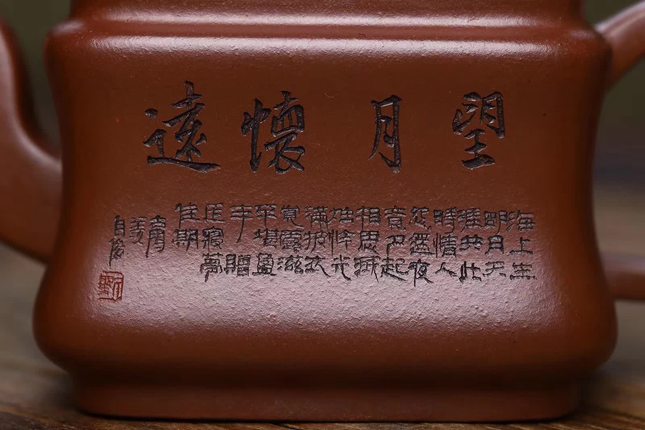 望月懷遠
海上生
明月天
涯共此
時情人
怨遙夜
竟夕起
相思滅
燭怜光
滿披衣
覺露滋
不堪盈
手贈
還寢夢
佳期